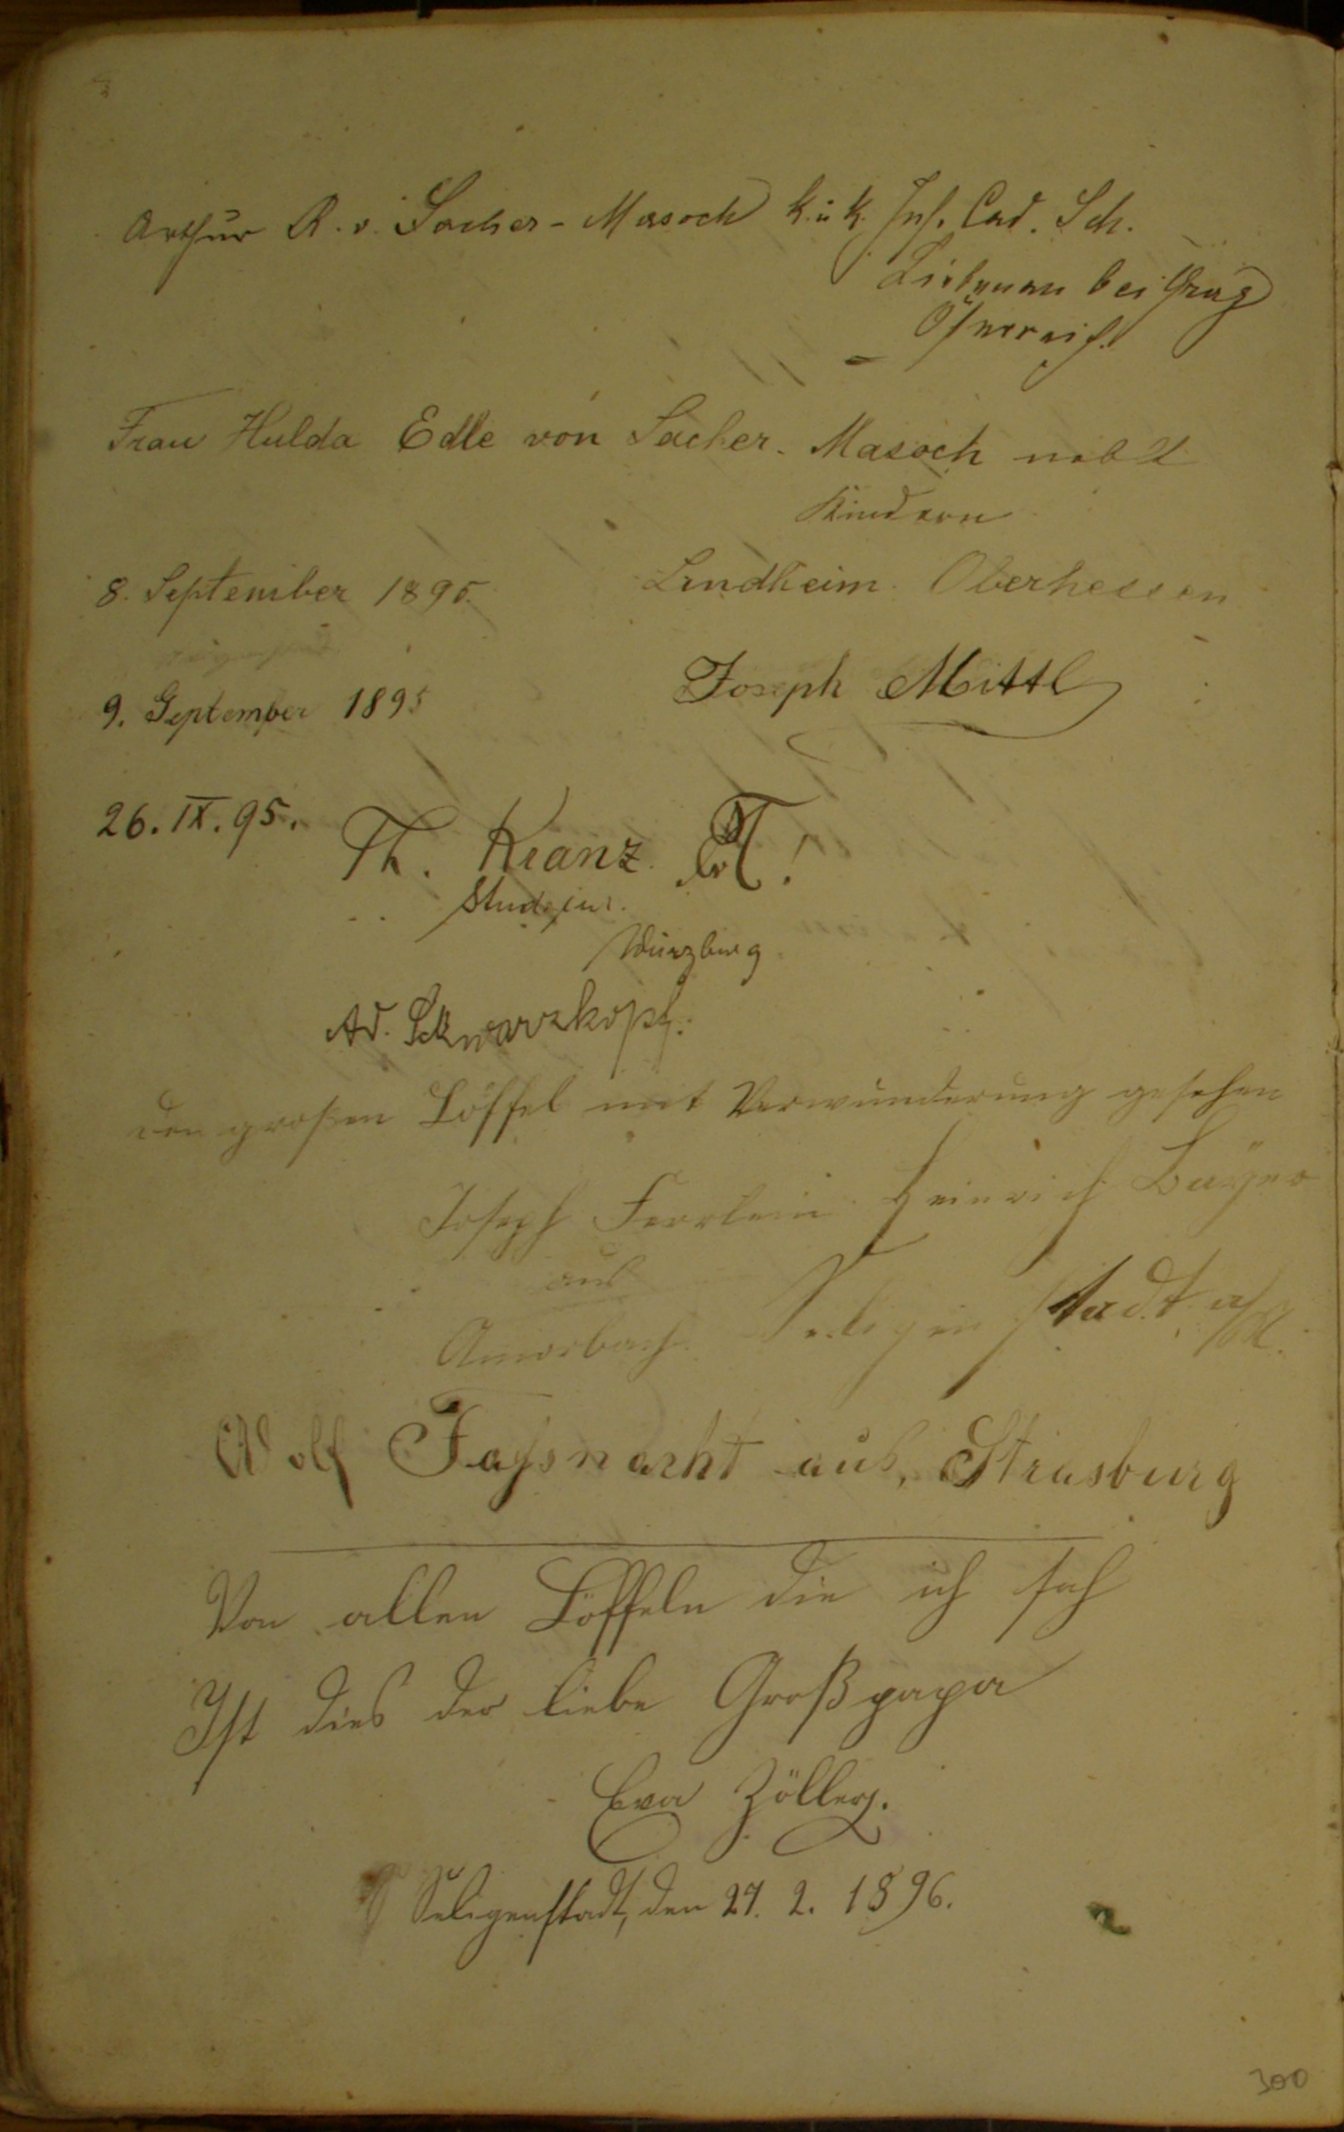 Arthur R. v. Sacher-Masoch k. u k. Inf. Cad. Sch.
Liebenau bei Graz
Österreich.
Frau Hulda Edle von Sacher-Masoch nebst
Kindern
8. September 1895. Lindheim. Oberhessen
9. September 1895 Joseph Mittl
26. IX. 95. Th. Kranz
Stud. jur.
Würzburg
Ad. Schwarzkopf.
den großen Löffel mit Verwunderung gesehen
Joseph Heinrich Bayer
aus
Amorbach. Seligenstadt a/M.
Wolf Fassnacht aus Strasburg
Von allen Löffeln die ich sah
Ist dies der liebe Großpapa
Eva Zöller.
Seligenstadt, den 27. 2. 1896.
300